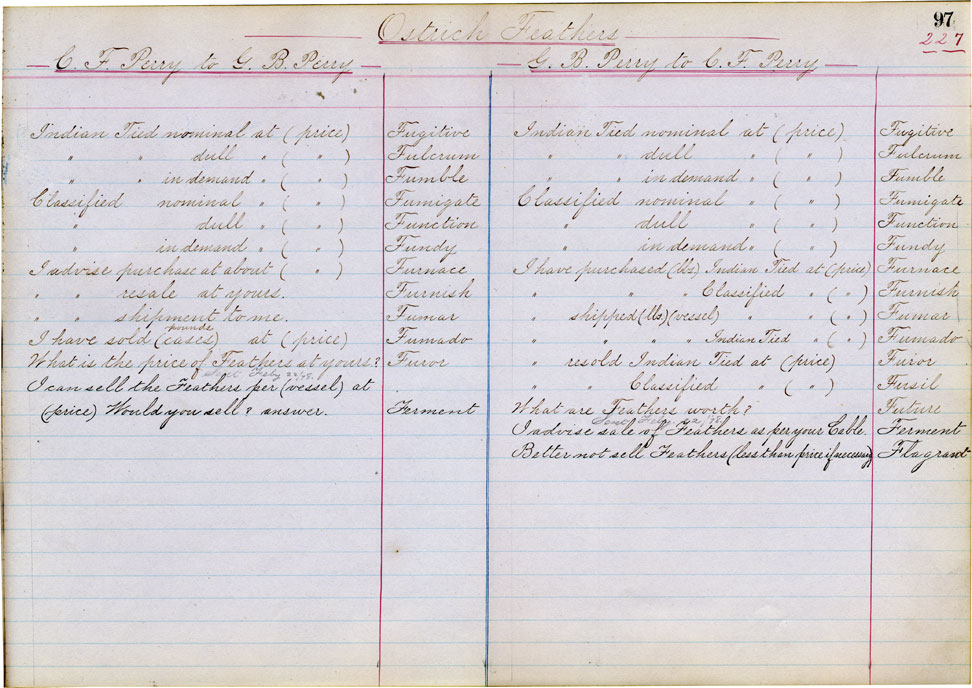 97
Ostrich Feathers
227
C. F. Perry to G. B. Perry
Indian Tied nominal at (price) Fugitive
" " dull " ( " ) Fulcrum
" " in demand " ( " ) Fumble
Classified nominal " ( " ) Fumigate
" dull " ( " ) Function
" in demand " ( " ) Fundy
I advise purchase at about ( " ) Furnace
" " resale at yours. Furnish
" " shipment to me. Fumar
pounds
I have sold (cases) at (price) Fumado
What is the price of Feathers at yours? Furor
Sent Feby
I can sell the Feathers per (vessel) at
(price) Would you sell? answer. Ferment
G. B. Perry to C. F. Perry
Indian Tied nominal at (price) Fugitive
" " dull " ( " ) Fulcrum
" " in demand " ( " ) Fumble
Classified nominal " ( " ) Fumigate
" dull " ( " ) Function
" in demand " ( " ) Fundy
I have purchased (lbs) Indian Tied at (price) Furnace
" " " Classified " ( " ) Furnish
" shipped (lbs) (vessel) " ( " ) Fumar
" " " " Indian Tied " ( " ) Fumado
" resold Indian Tied at (price) Furor
" " Classified " ( " ) Fusil
What are Feathers worth? Future
Sent Feby
I advise sale of Feathers as per your Cable. Ferment
Better not sell Feathers (less than price if necessary) Flagrant